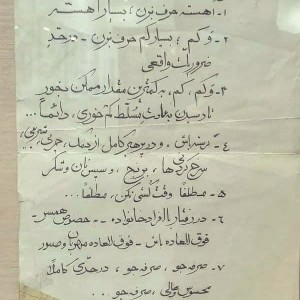 ۱- آهسته حرف بزن؛ بسیار آهسته
۲- و کم؛ بسیار کم حرف بزن - در حدّ
ضرورتِ واقعی
۳- و کم، کم، به کمترین مقدار ممکن بخور
تا رسیدن به عادتِ مُسَلّطِ کم خوری، دائماً...
۴- باش، و در پرهیز کامل از نمک، چربی،
سرخ کردنی ها، برنج، و سپس نان و شکر
۵- مطلقاً وقت کُشی نکن. مطلقاً...
۶- در رفتار با افراد خانواده -- خصوصاً همسر -
فوق العاده باش - فوق العاده مهربان و صبور
۷- صرفه جو، صرفه جو، در حدّی کاملاً
محسوس و عالی، صرفه جو...